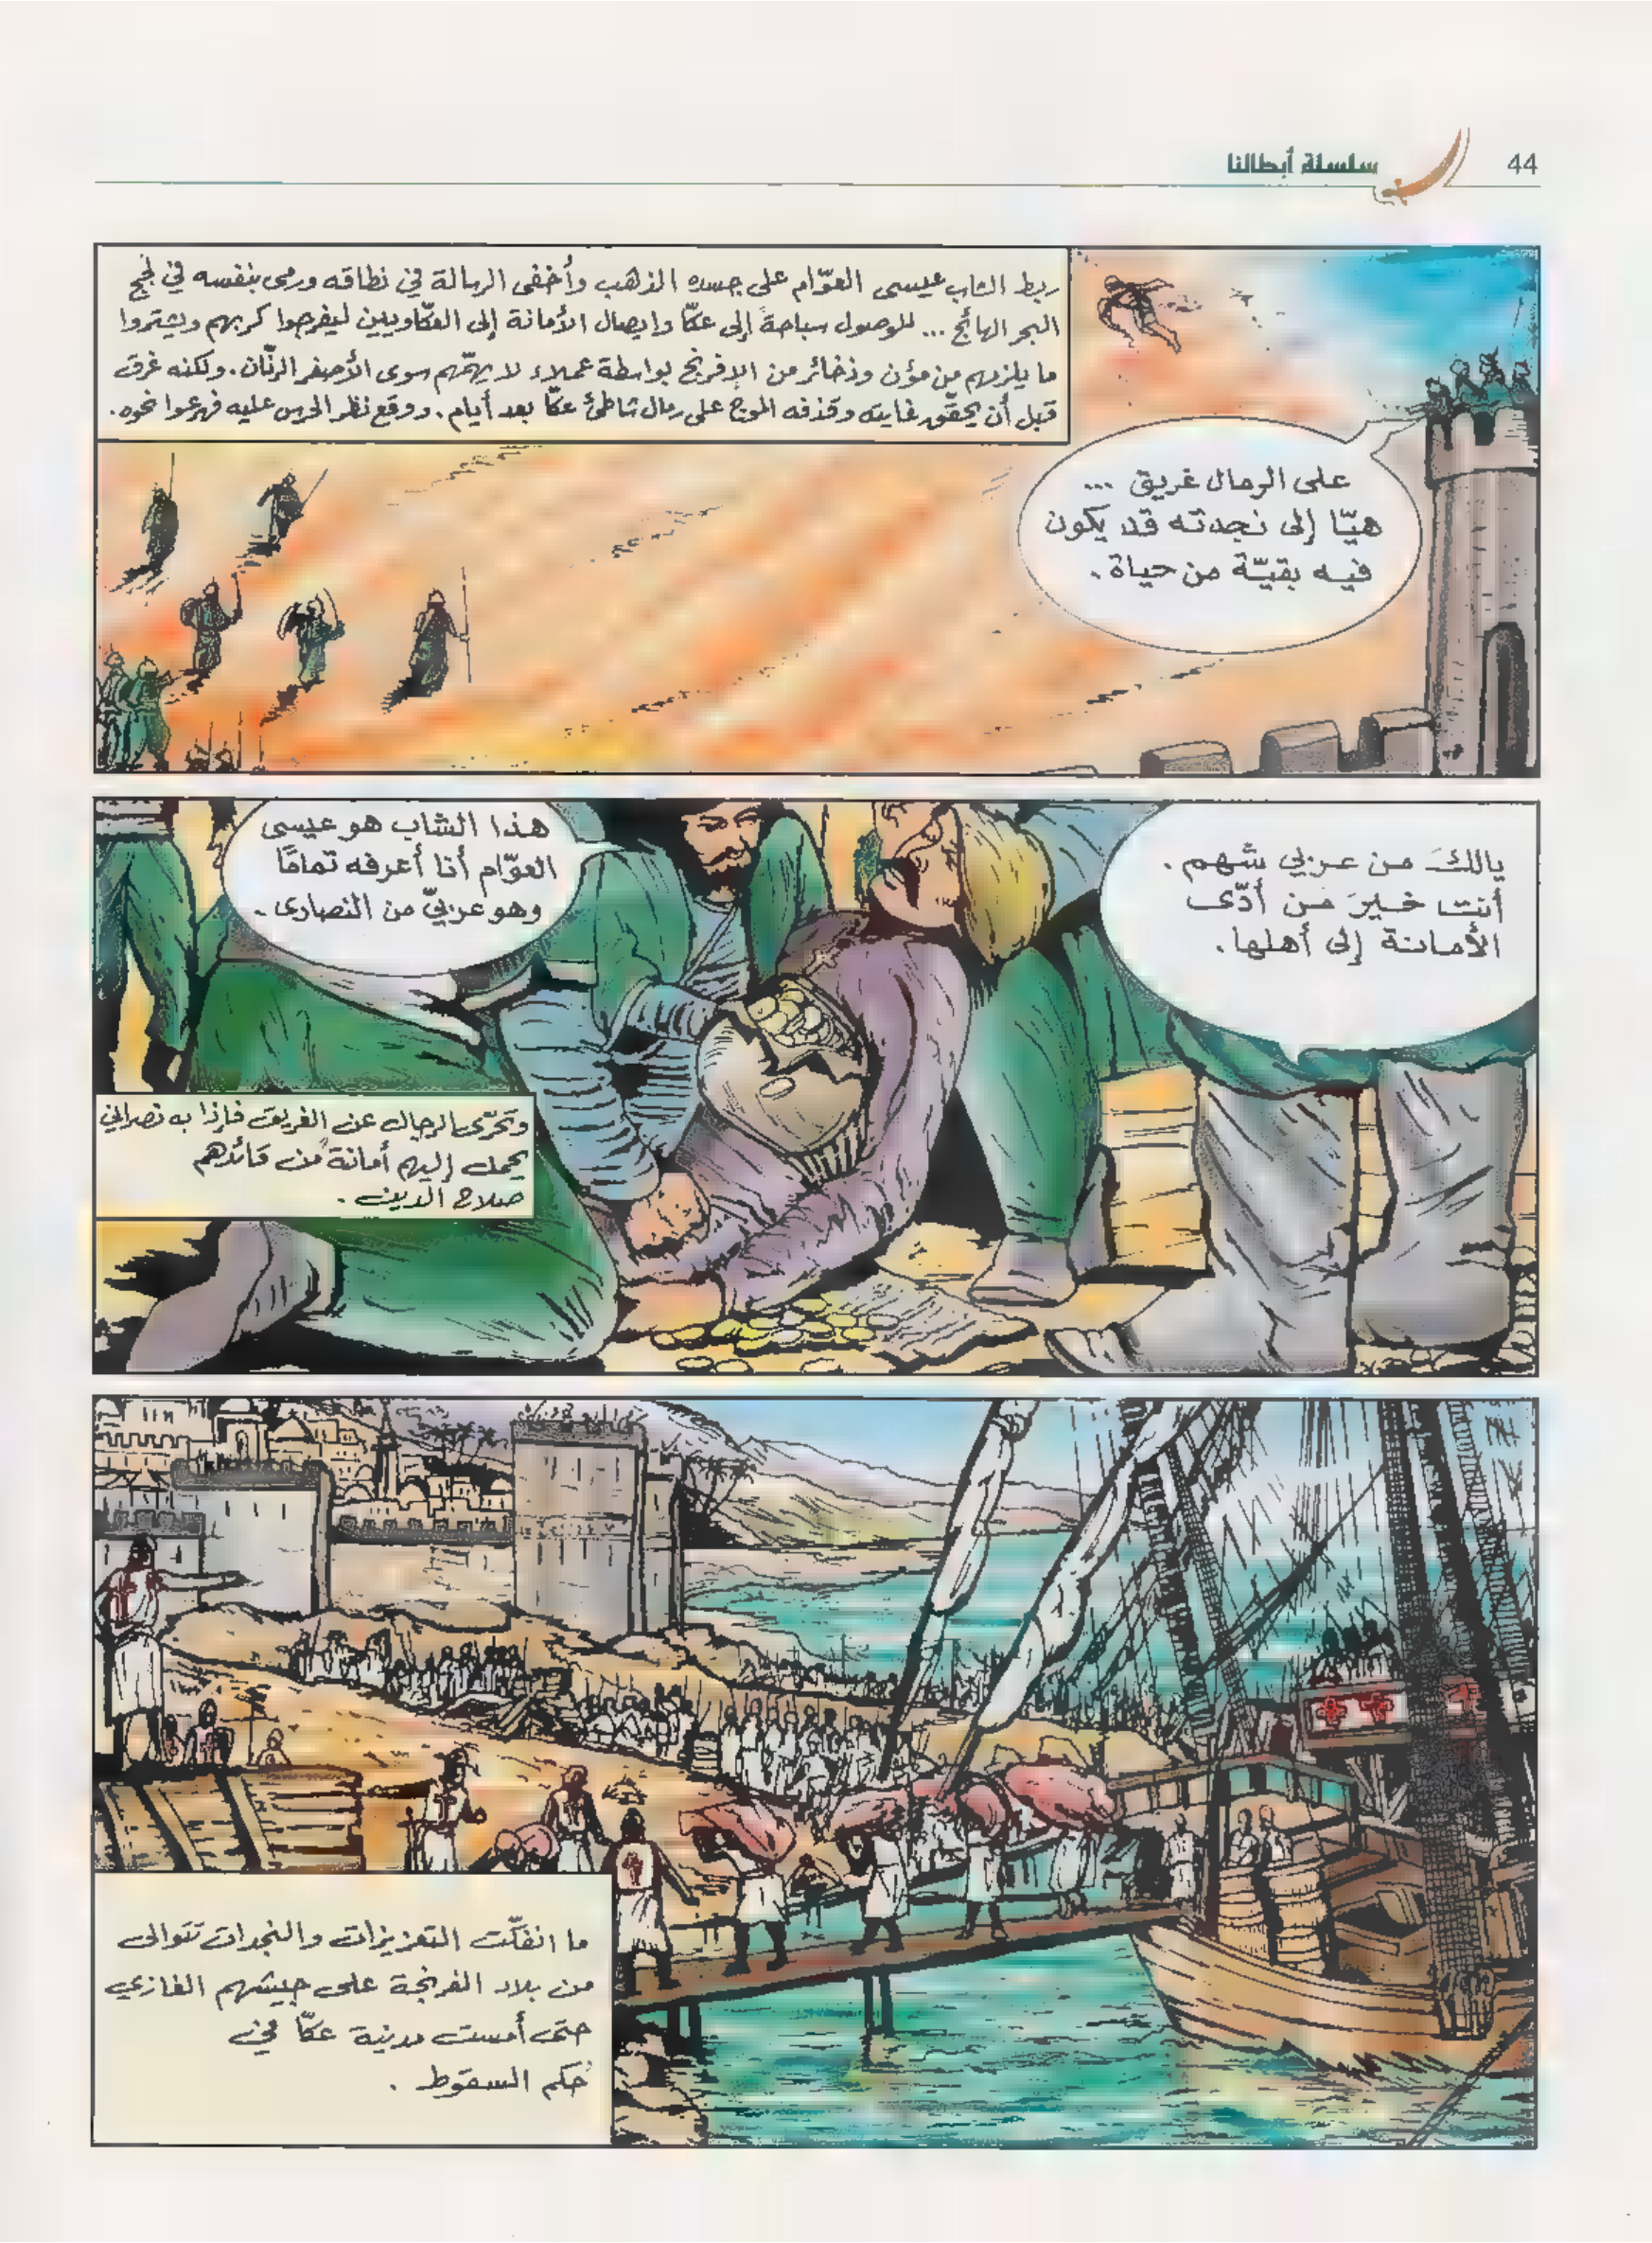 44
سلسلة أبطالنا
ربط الشاب عيسى العوّام على جسده الذهب وأخفى الرسالة في نطاقه ورمى بنفسه في لجج
البحر الهائج ... للوصول سباحةً إلى عكّا وإيصال الأمانة إلى العكّاويين ليفرجوا كربهم ويشتروا
ما يلزمهم من مؤن وذخائر من الإفرنج بواسطة عملاء لا يهمّهم سوى الأصفر الرنّان. ولكنه غرق
قبل أن يحقّق غايته وقذفه الموج على رمال شاطئ عكّا بعد أيام. ووقع نظر الحرس عليه فهرعوا نحوه.
على الرمال غريق ...
هيّا إلى نجدته قد يكون
فيه بقيّة من حياة.
يالكَ من عربي شهم.
أنت خيرَ مَن أدّى
الأمانة إلى أهلها.
هذا الشاب هو عيسى
العوّام أنا أعرفه تمامًا
وهو عربيّ من النصارى.
وتحرّى الرجال عن الغريق فإذا به نصراني
يحمل إليهم أمانة من قائدهم
صلاح الدين.
ما انفكّت التعزيزات والنجدات تتوالى
من بلاد الفرنجة على جيشهم الغازي
حتى أمست مدينة عكّا في
حُكم السقوط.